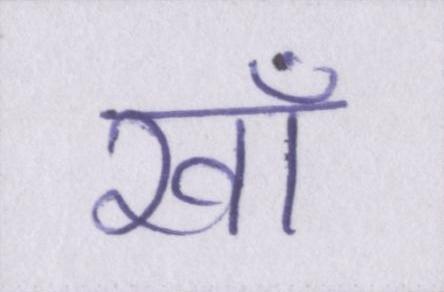 खाँ